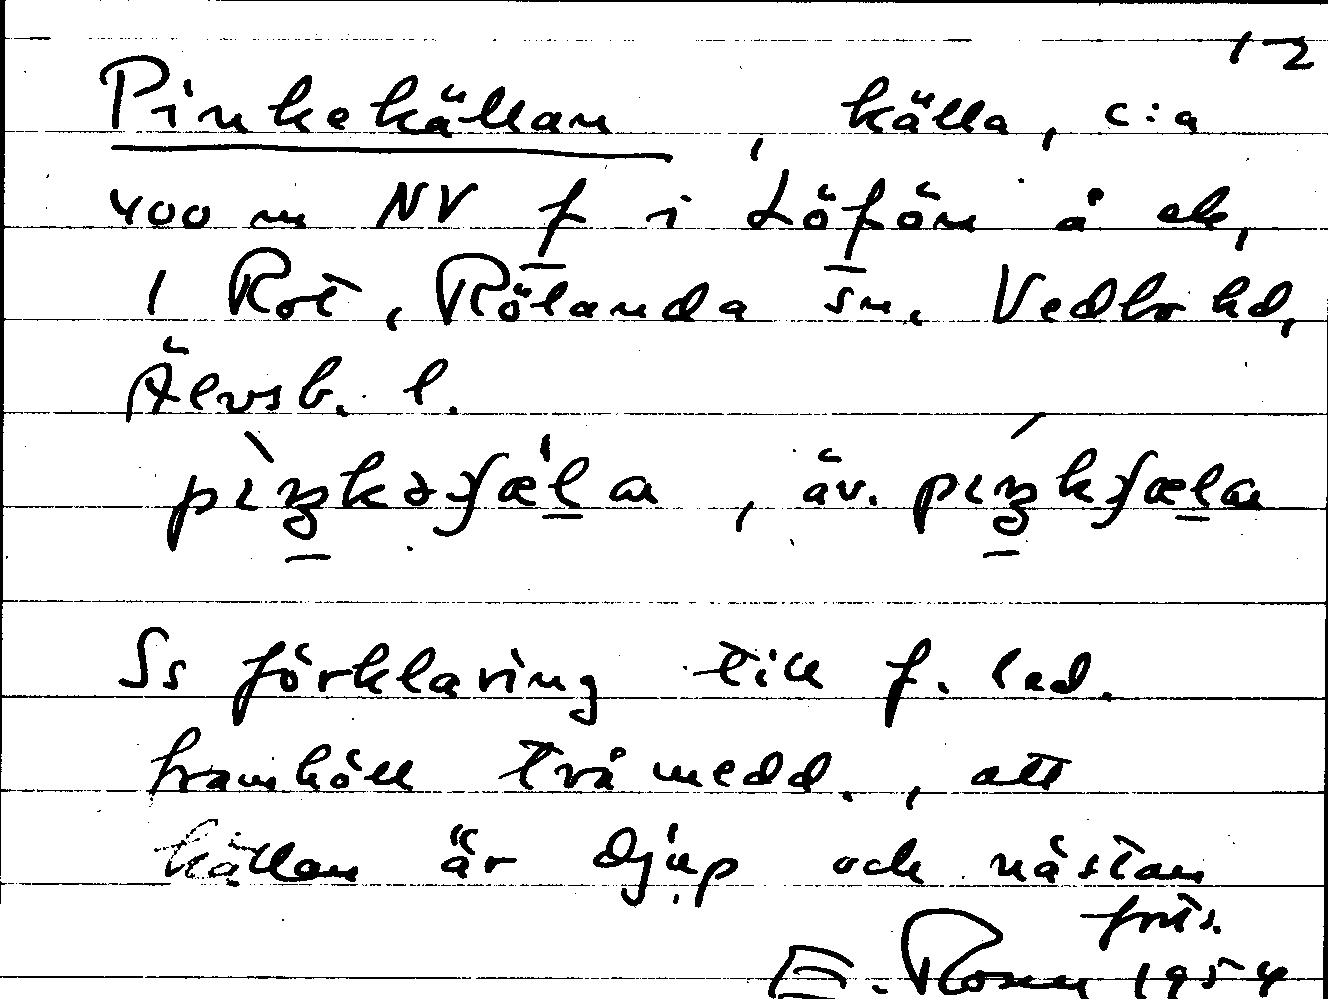 1-2
Pinkekällan, källa, c:a
400 m NV f i Löfön å ek,
1 Rot, Rölanda sn. Vedbo hd,
Älvsb. l.
, äv.
Ss förklaring till f. led.
framhöll två medd., att
källan är djup och nästan
forts.
E. Rosen 1954